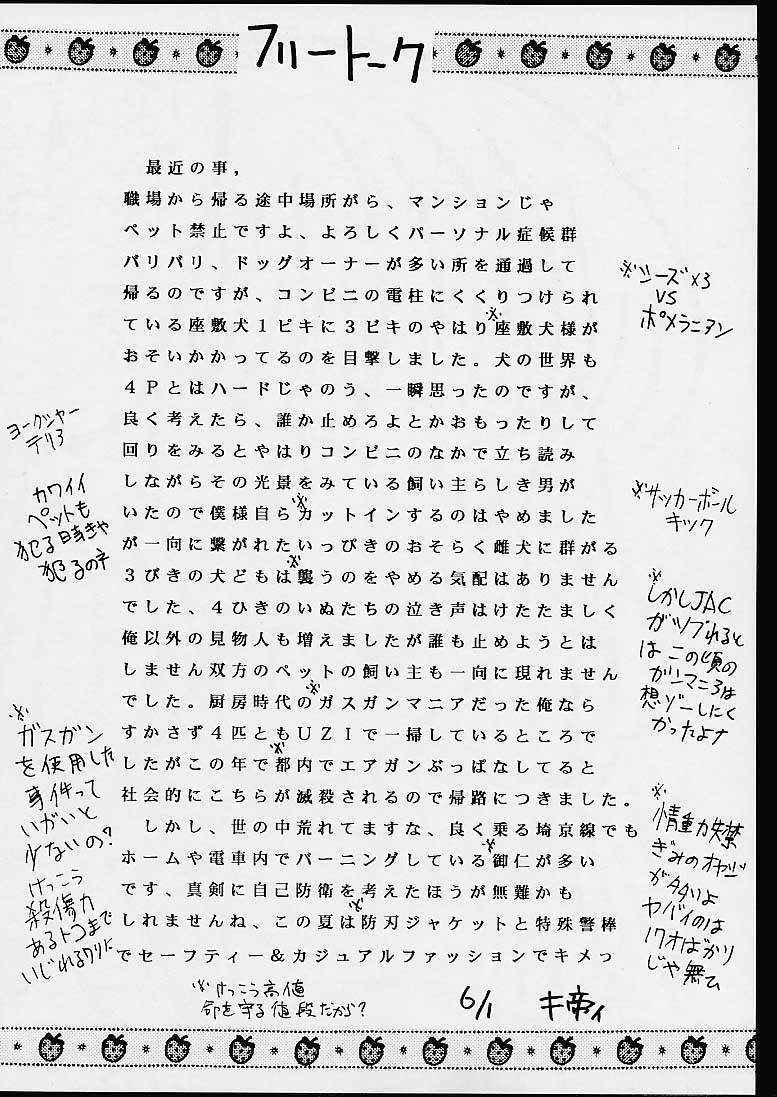 フリートーク
最近の事,
職場から帰る途中場所がら、マンションじゃ
ペット禁止ですよ、よろしくパーソナル症候群
バリバリ、ドッグオーナーが多い所を通過して
帰るのですが、コンビニの電柱にくくりつけられ
ている座敷犬1ピキに3ビキのやはり座敷犬様が
おそいかかってるのを目撃しました。犬の世界も
4Pとはハードじゃのう、一瞬思ったのですが、
良く考えたら、誰か止めろよとかおもったりして
回りをみるとやはりコンビニのなかで立ち読み
しながらその光景をみている飼い主らしき男が
いたので僕様自らカットインするのはやめました
が一向に繋がれたいっぴきのおそらく雌犬に群がる
3びきの犬どもは襲うのをやめる気配はありません
でした、4ひきのいぬたちの泣き声はけたたましく
俺以外の見物人も増えましたが誰も止めようとは
しません双方のペットの飼い主も一向に現れません
でした。厨房時代のガスガンマニアだった俺なら
すかさず4匹ともUZIで一掃しているところで
したがこの年で都内でエアガンぶっぱなしてると
社会的にこちらが滅殺されるので帰路につきました。
しかし、世の中荒れてますな、良く乗る埼京線でも
ホームや電車内でバーニングしている御仁が多い
です、真剣に自己防衛を考えたほうが無難かも
しれませんね、この夏は防刃ジャケットと特殊警棒
でセーフティー&カジュアルファッションでキメっ
※シーズ×3
VS
ポメラニアン
ヨークシャー
テリア
カワイイ
ペットも
犯る時きゃ
犯るのネ
※サッカーボール
キック
※しかしJAC
がツブれると
はこの頃の
ガンマニアは
想ゾーしにく
かったよナ
※
ガスガン
を使用した
事件って
いがいと
少ないの?
けっこう
殺傷力
あるトコまで
いじれるワリに
※
情重力失禁
ぎみのオヤジ
が多いよ
ヤバイのは
17才ばかり
じゃ無ひ
※けっこう高値
命を守る値段だから?
6/1